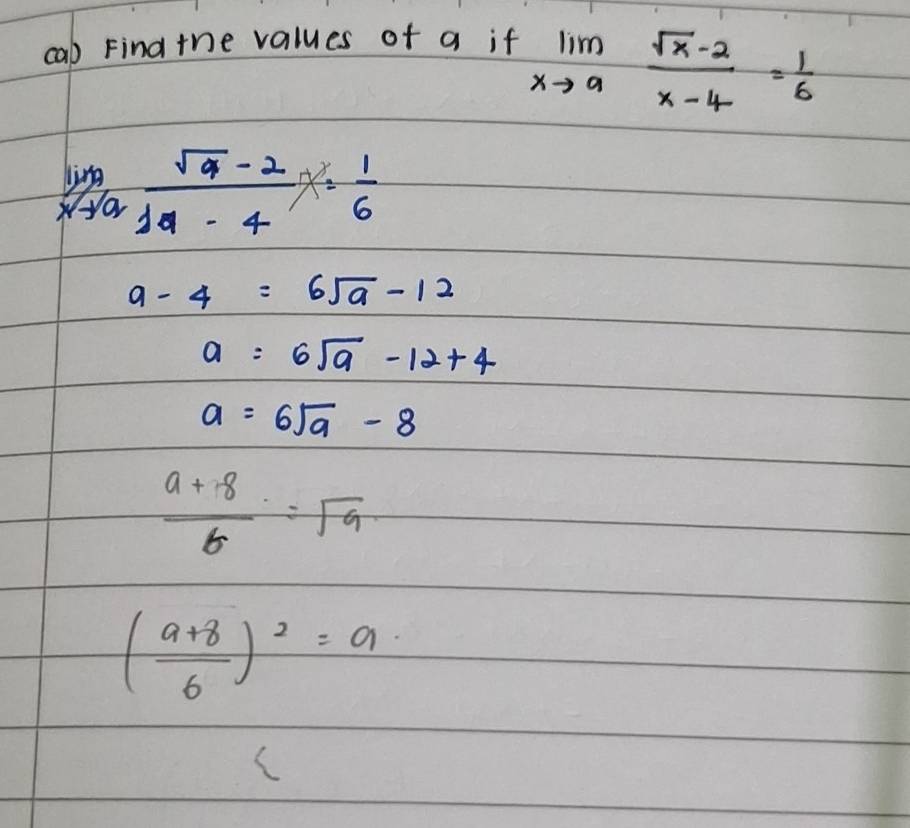 (a) Find the values of a if lim x→a (√x - 2)/(x - 4) = 1/6
lim x→a (√a - 2)/(a - 4) = 1/6
a - 4 = 6√a - 12
a = 6√a - 12 + 4
a = 6√a - 8
(a + 8)/6 = √a
((a+8)/6)² = a